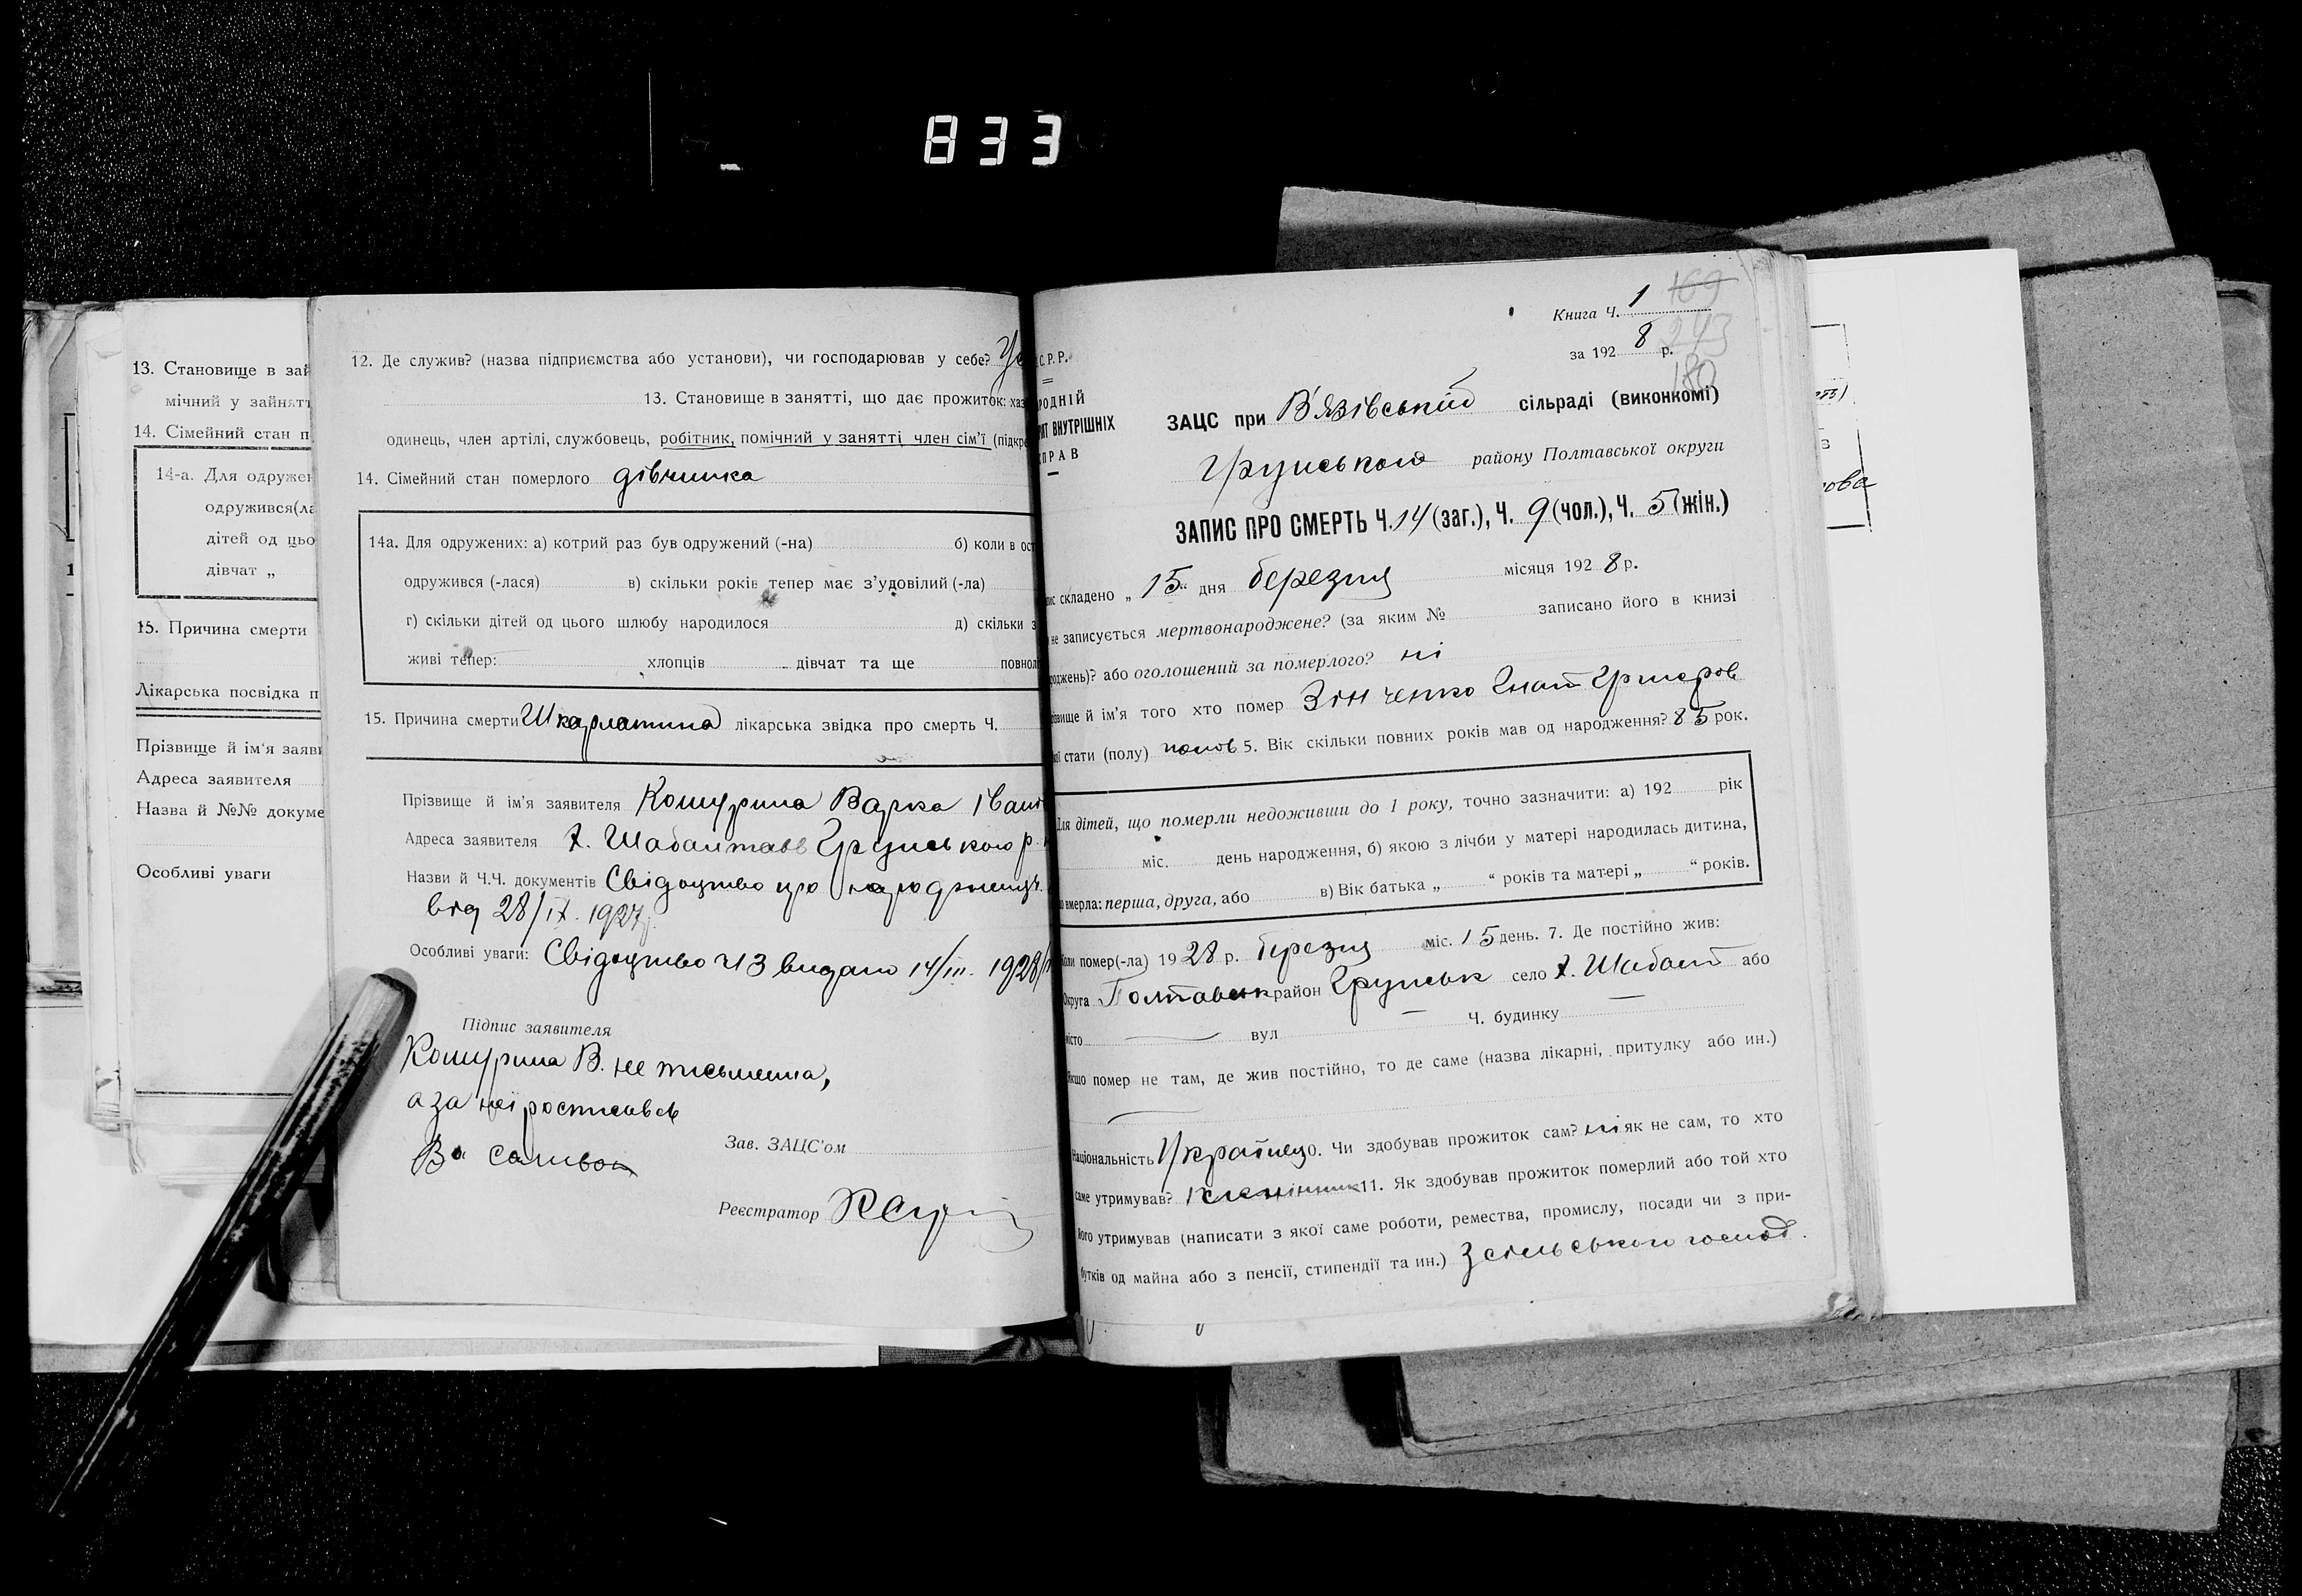 833
13. Становище в зай
мічний у зайнятт
14. Сімейний стан п
14-а. Для одружен
одружився(ла
дітей од цьо
дівчат „
15. Причина смерти
Лікарська посвідка п
Прізвище й ім'я заяви
Адреса заявителя
Назва й №№ докуме
Особливі уваги
12. Де служив? (назва підприємства або установи), чи господарював у себе? У се
13. Становище в занятті, що дає прожиток: хаз
одинець, член артілі, службовець, робітник, помічний у занятті член сім'ї (підкре
14. Сімейний стан померлого дівчинка
14а. Для одружених: а) котрий раз був одружений (-на) б) коли в ост
одружився (-лася) в) скільки років тепер має з'удовілий (-ла)
г) скільки дітей од цього шлюбу народилося д) скільки з
живі тепер: хлопців дівчат та ще повнол
15. Причина смерти Шкарлатина лікарська звідка про смерть Ч.
Прізвище й ім'я заявителя Кошурина Варка Іван
Адреса заявителя х. Шабалтаєв Грунського р.
Назви й Ч.Ч. документів Свідоцтво про народження
від 28/IX. 1927р.
Особливі уваги: Свідоцтво Ч 3 видано 14/III. 1928
Підпис заявителя
Кошурина В. не письменна,
а за неї росписався
Зав. ЗАЦС'ом
Реєстратор
Книга Ч. 1
169
243
за 192 8 р.
180
С.Р.Р.
РОДНІЙ
РІЯТ ВНУТРІШНІХ
ПРАВ
ЗАЦС при В'язівській сільраді (виконкомі)
Грунського району Полтавської округи
ЗАПИС ПРО СМЕРТЬ Ч. 14 (заг.), Ч. 9 (чол.), Ч. 5 (жін.)
ис складено „15“ дня березня місяця 192 8 р.
не записується мертвонароджене? (за яким № записано його в книзі
роджень)? або оголошений за померлого? ні
звище й ім'я того хто помер Зінченко Гнат Григоров
ої стати (полу) чолов 5. Вік скільки повних років мав од народження? 85 рок.
Для дітей, що померли недоживши до 1 року, точно зазначити: а) 192 рік
міс. день народження, б) якою з лічби у матері народилась дитина,
о вмерла: перша, друга, або в) Вік батька „ “ років та матері „ “ років.
Коли помер(-ла) 19 28 р. березня міс. 15 день. 7. Де постійно жив:
Округа Полтавськ район Грунськ село х. Шабалт або
місто вул — Ч. будинку —
Якщо помер не там, де жив постійно, то де саме (назва лікарні, притулку або ин.)
Національність Українец 10. Чи здобував прожиток сам? ні як не сам, то хто
саме утримував? 11. Як здобував прожиток померлий або той хто
його утримував (написати з якої саме роботи, ремества, промислу, посади чи з при-
бутків од майна або з пенсії, стипендії та ин.) З сільського господ.